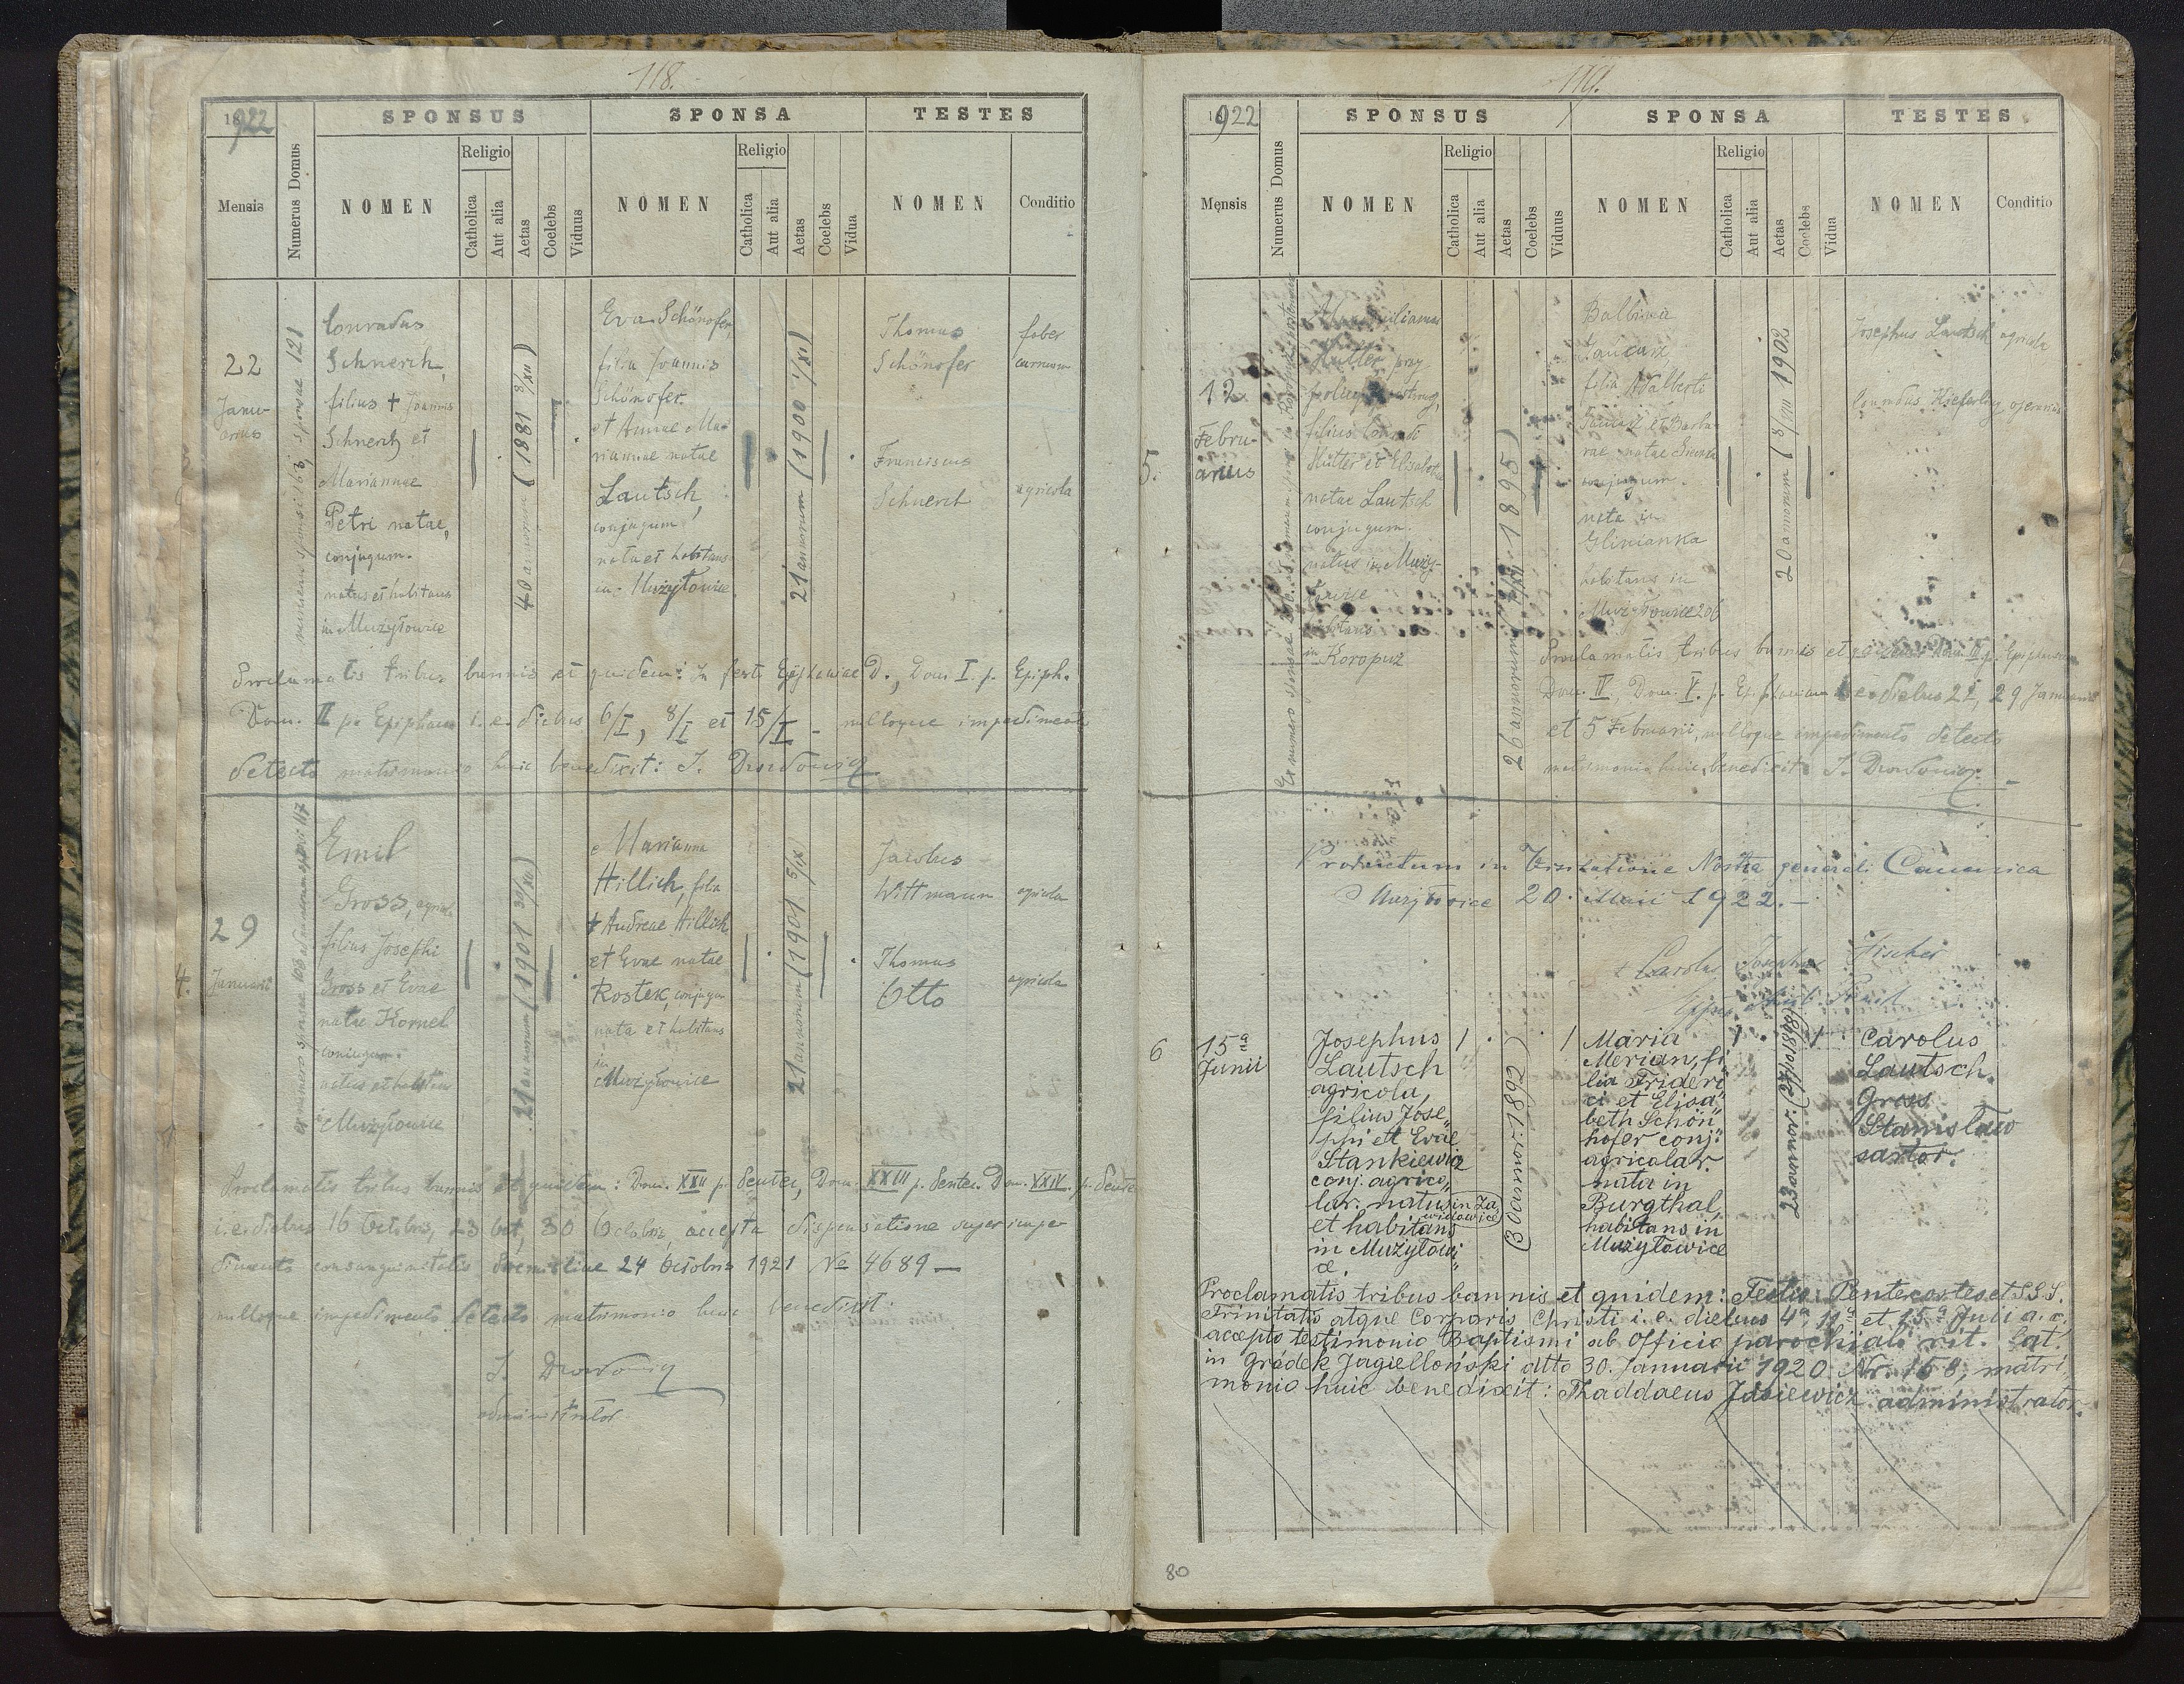 118.
1922
SPONSUS
SPONSA
TESTES
Mensis
Numerus Domus
NOMEN
Religio
Catholica
Aut alia
Aetas
Coelebs
Viduus
NOMEN
Religio
Catholica
Aut alia
Aetas
Coelebs
Vidua
NOMEN
Conditio
22
Janu-
arius
sponsi 163, sponsae 121
Conradus
Schnerch,
filius † Joannis
Schnerch et
Mariannae
Petri natae,
conjugum.
natus et habitans
in Mużyłowice
40 annorum (1881 8/XII)
Eva Schönofer,
filia Joannis
Schönofer
et Annae Ma-
riannae natae
Lautsch,
conjugum,
nata et habitans
in Mużyłowice
21 annorum (1900 1/XI)
Thomas
Schönofer
faber
Franciscus
Schnerch
agricola
Proclamatis tribus bannis et quidem: In festo Epiphaniae D., Dom I. p. Epiph.
Dom. II p. Epiphan i. e. diebus 6/I, 8/I et 15/I - nulloque impedimento
detecto matrimonio huic benedixit:
4.
29
Januarii
ex numero sponsae 103 ad numerum sponsi 117
Emil
Gross, agricola
filius Josephi
Gross et Evae
natae Kornel
conjugum.
natus et habitans
in Mużyłowice
21 annorum (1901 30/XII)
Marianna
Hillich, filia
† Andreae Hillich
et Evae natae
Kostek, conjugum
nata et habitans
in
Mużyłowice
21 annorum (1901 5/IX)
Jacobus
Wittmann
agricola
Thomas
Otto
agricola
Proclamatis tribus bannis et quidem: Dom. XXII p. Pentec, Dom. XXIII p. Pentec. Dom. XXIV. p. Pentec
i. e. diebus 16 Octobris, 23 Oct, 30 Octobris, accepta dispensatione super impe-
dimento consanguinitatis Premisliae 24 Octobris 1921 No 4689 —
nulloque impedimento detecto matrimonio huic benedixit:
administrator
119.
1922
SPONSUS
SPONSA
TESTES
Mensis
Numerus Domus
NOMEN
Religio
Catholica
Aut alia
Aetas
Coelebs
Viduus
NOMEN
Religio
Catholica
Aut alia
Aetas
Coelebs
Vidua
NOMEN
Conditio
5.
12
Febru-
arius
Hutter
filius Conradi
Hutter et Elisabeth
natae Lautsch
conjugum.
natus in Muży-
łowice
habitans
in Koropuż
26 annorum 1895)
Balbina
filia Adalberti
et Barba-
rae natae
conjugum.
nata in
Glinianka
habitans in
Mużyłowice 206
20 annorum (8/VIII 1902
Josephus Lautsch agricola
Kieferling
Proclamatis tribus bannis et quidem Dom. III p. Epiphaniam
Dom. IV, Dom. V. p. Epiphaniam i. e. diebus 22, 29 Januarii
et 5 Februarii, nulloque impedimento detecto
matrimonio huic benedixit
Productum in Visitatione Nostra generali Canonica
Mużyłowice 20. Maii 1922. —
† Carolus Josephus Fischer
6
15ª
Junii
Josephus
Lautsch
agricola,
filius Jose„
phi et Evae
Stankiewicz
conj. agrico„
lar. natus in Za„
widowice
et habitans
in Mużyłowi„
ce.
(30 annor. 1892)
Maria
Merian, fi„
lia Frideri„
ci et Elisa„
beth Schön„
hofer conj.
agricolar.
nata in
Burgthal,
habitans in
Mużyłowice
23 annor. (27/10 1898)
Carolus
Lautsch.
Gross
Stanisław
sartor.
Proclamatis tribus bannis et quidem: Festis: Pentecostes et S.S.S.
Trinitatis atque Corporis Christi i. e. diebus 4ª, 11ª et 15ª Junii a. c.
accepto testimonio Baptismi ab Officio parochiali rit. lat.
in Gródek Jagielloński dtto 30. Januarii 1920. Nr. 168, matri„
monio huic benedixit: Thaddaeus Jasiewicz administrator.
80